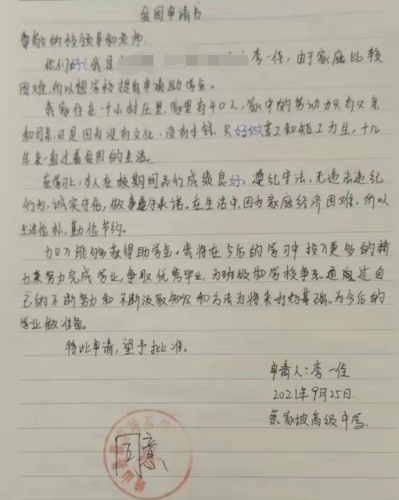 贫困申请书
尊敬的校领导和老师:
你们好!我是 李一佳,由于家庭比较
困难,所以想学校提出申请助学金。
我家住在一个小村庄里,家里有4口人,家中的劳动力只有父亲
和母,但是因为没有文化,没有手艺,只好做零工和短工为生,十几
年来一直过着贫困的生活。
在学习上,本人在校期间品行成绩良好,遵纪守法,无违法违纪
行为,诚实守信,做事遵守承诺。在生活中,因为家庭经济困难,所以
生活俭朴,勤俭节约。
如以能够获得助学金。我将在今后的学习中投入更多的精
力来努力完成学业,争取优秀毕业,为班级和学校争光。通过自
己的不断努力和不断汲取知识和方法为将来打好基础。为今后的
学业做准备。
特此申请,望予批准。
申请人:李一佳
2021年9月25日
蔡家坡高级中学
同意